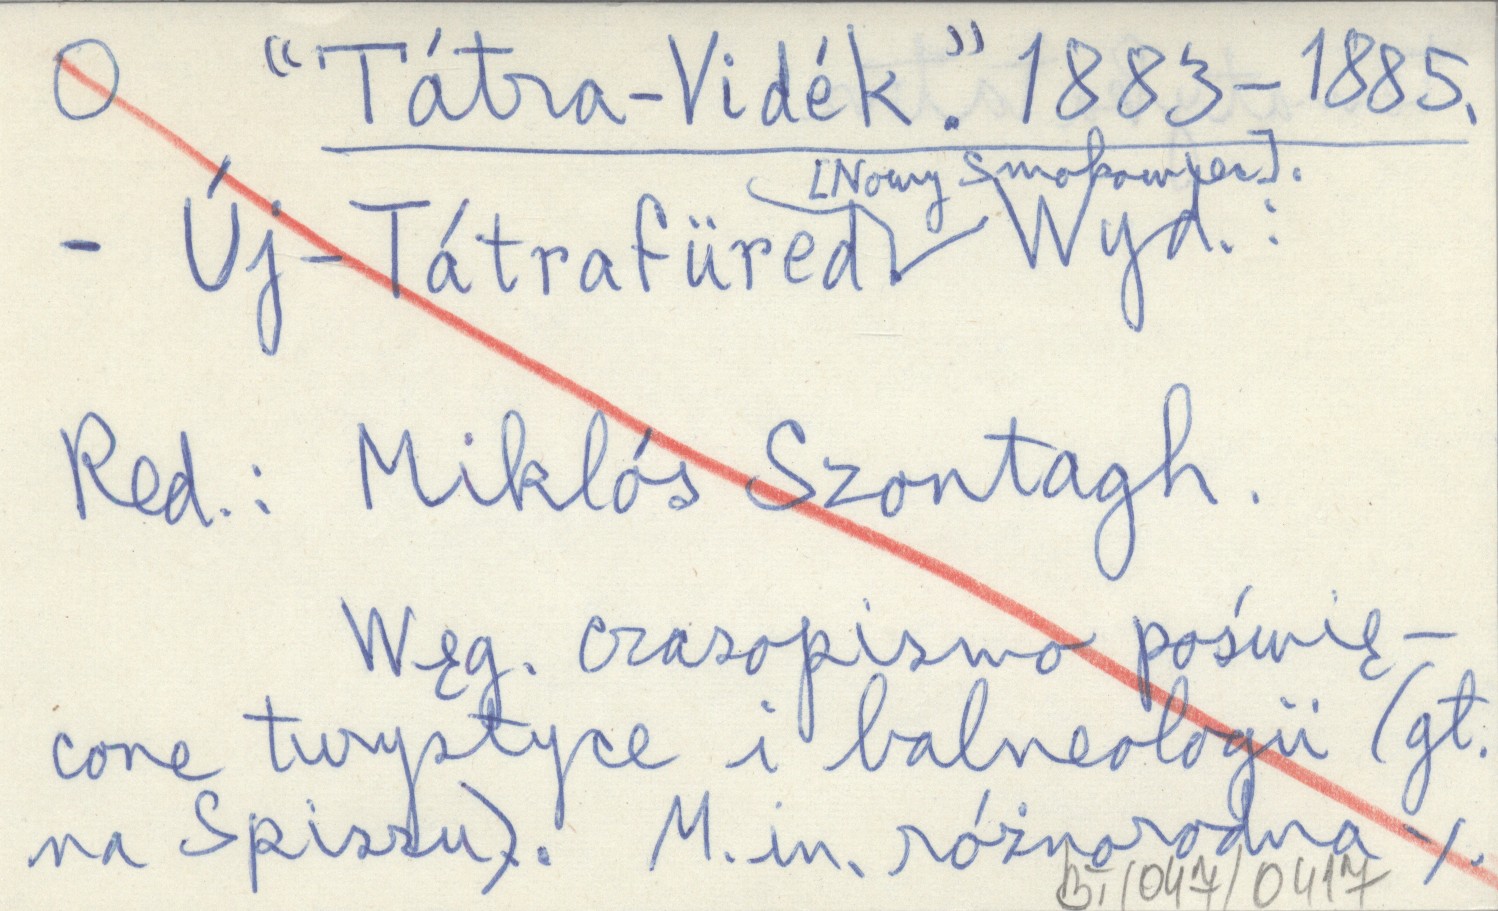 O "Tátra-Vidék." 1883-1885.
[Nowy Smokowiec].
- Új-Tátrafüred Wyd.:
Red.: Miklós Szontagh.
Węg. czasopismo poświę-
cone turystyce i balneologii (gł.
na Spiszu). M.in. różnorodna -/.
BI/047/0417